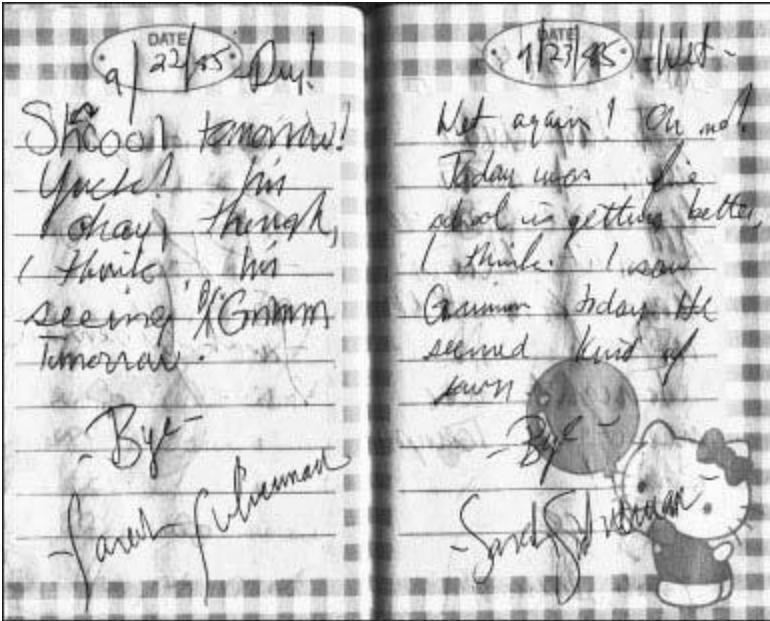 DATE
9/22/85 Dry!
School tomorrow!
Yuck! I'm
okay, though,
I think I'm
seeing Dr. Grimm
Tomorrow.
-Bye-
-Sarah
DATE
9/23/85 -Wet-
Wet again! Oh no!
Today was fine
school is getting better,
I think. I saw
Grimm today He
seemed kind of
-Bye-
-Sarah